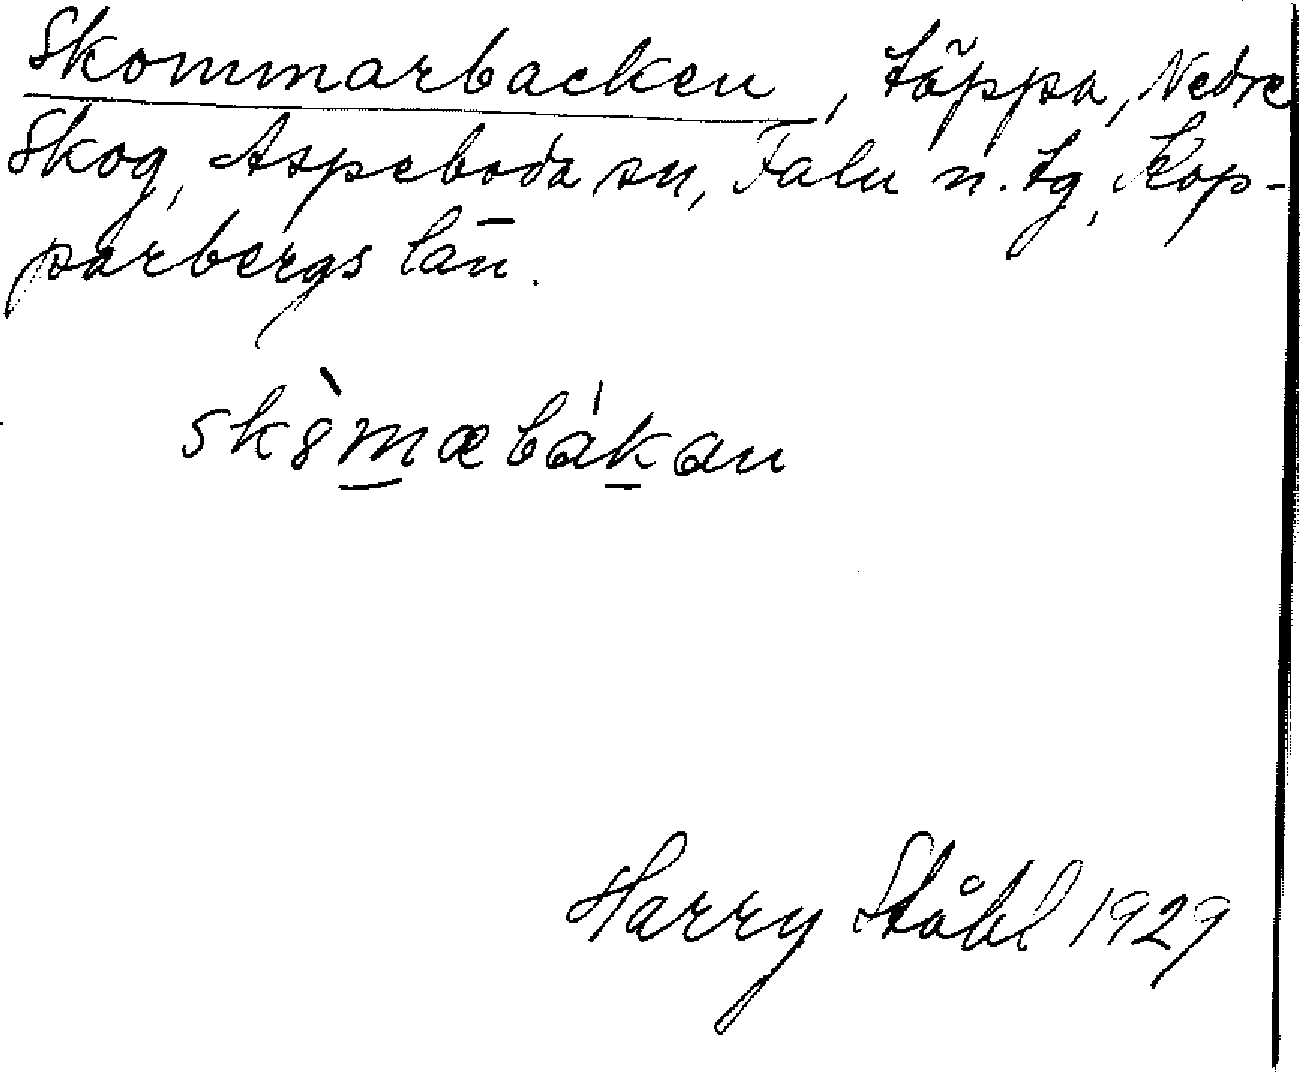 Skommarbacken, täppa, Nedre
Skog, Aspeboda sn, Falu n. tg, Kop-
parbergs län.
sk8̀mæbákan
Harry Ståhl 1929